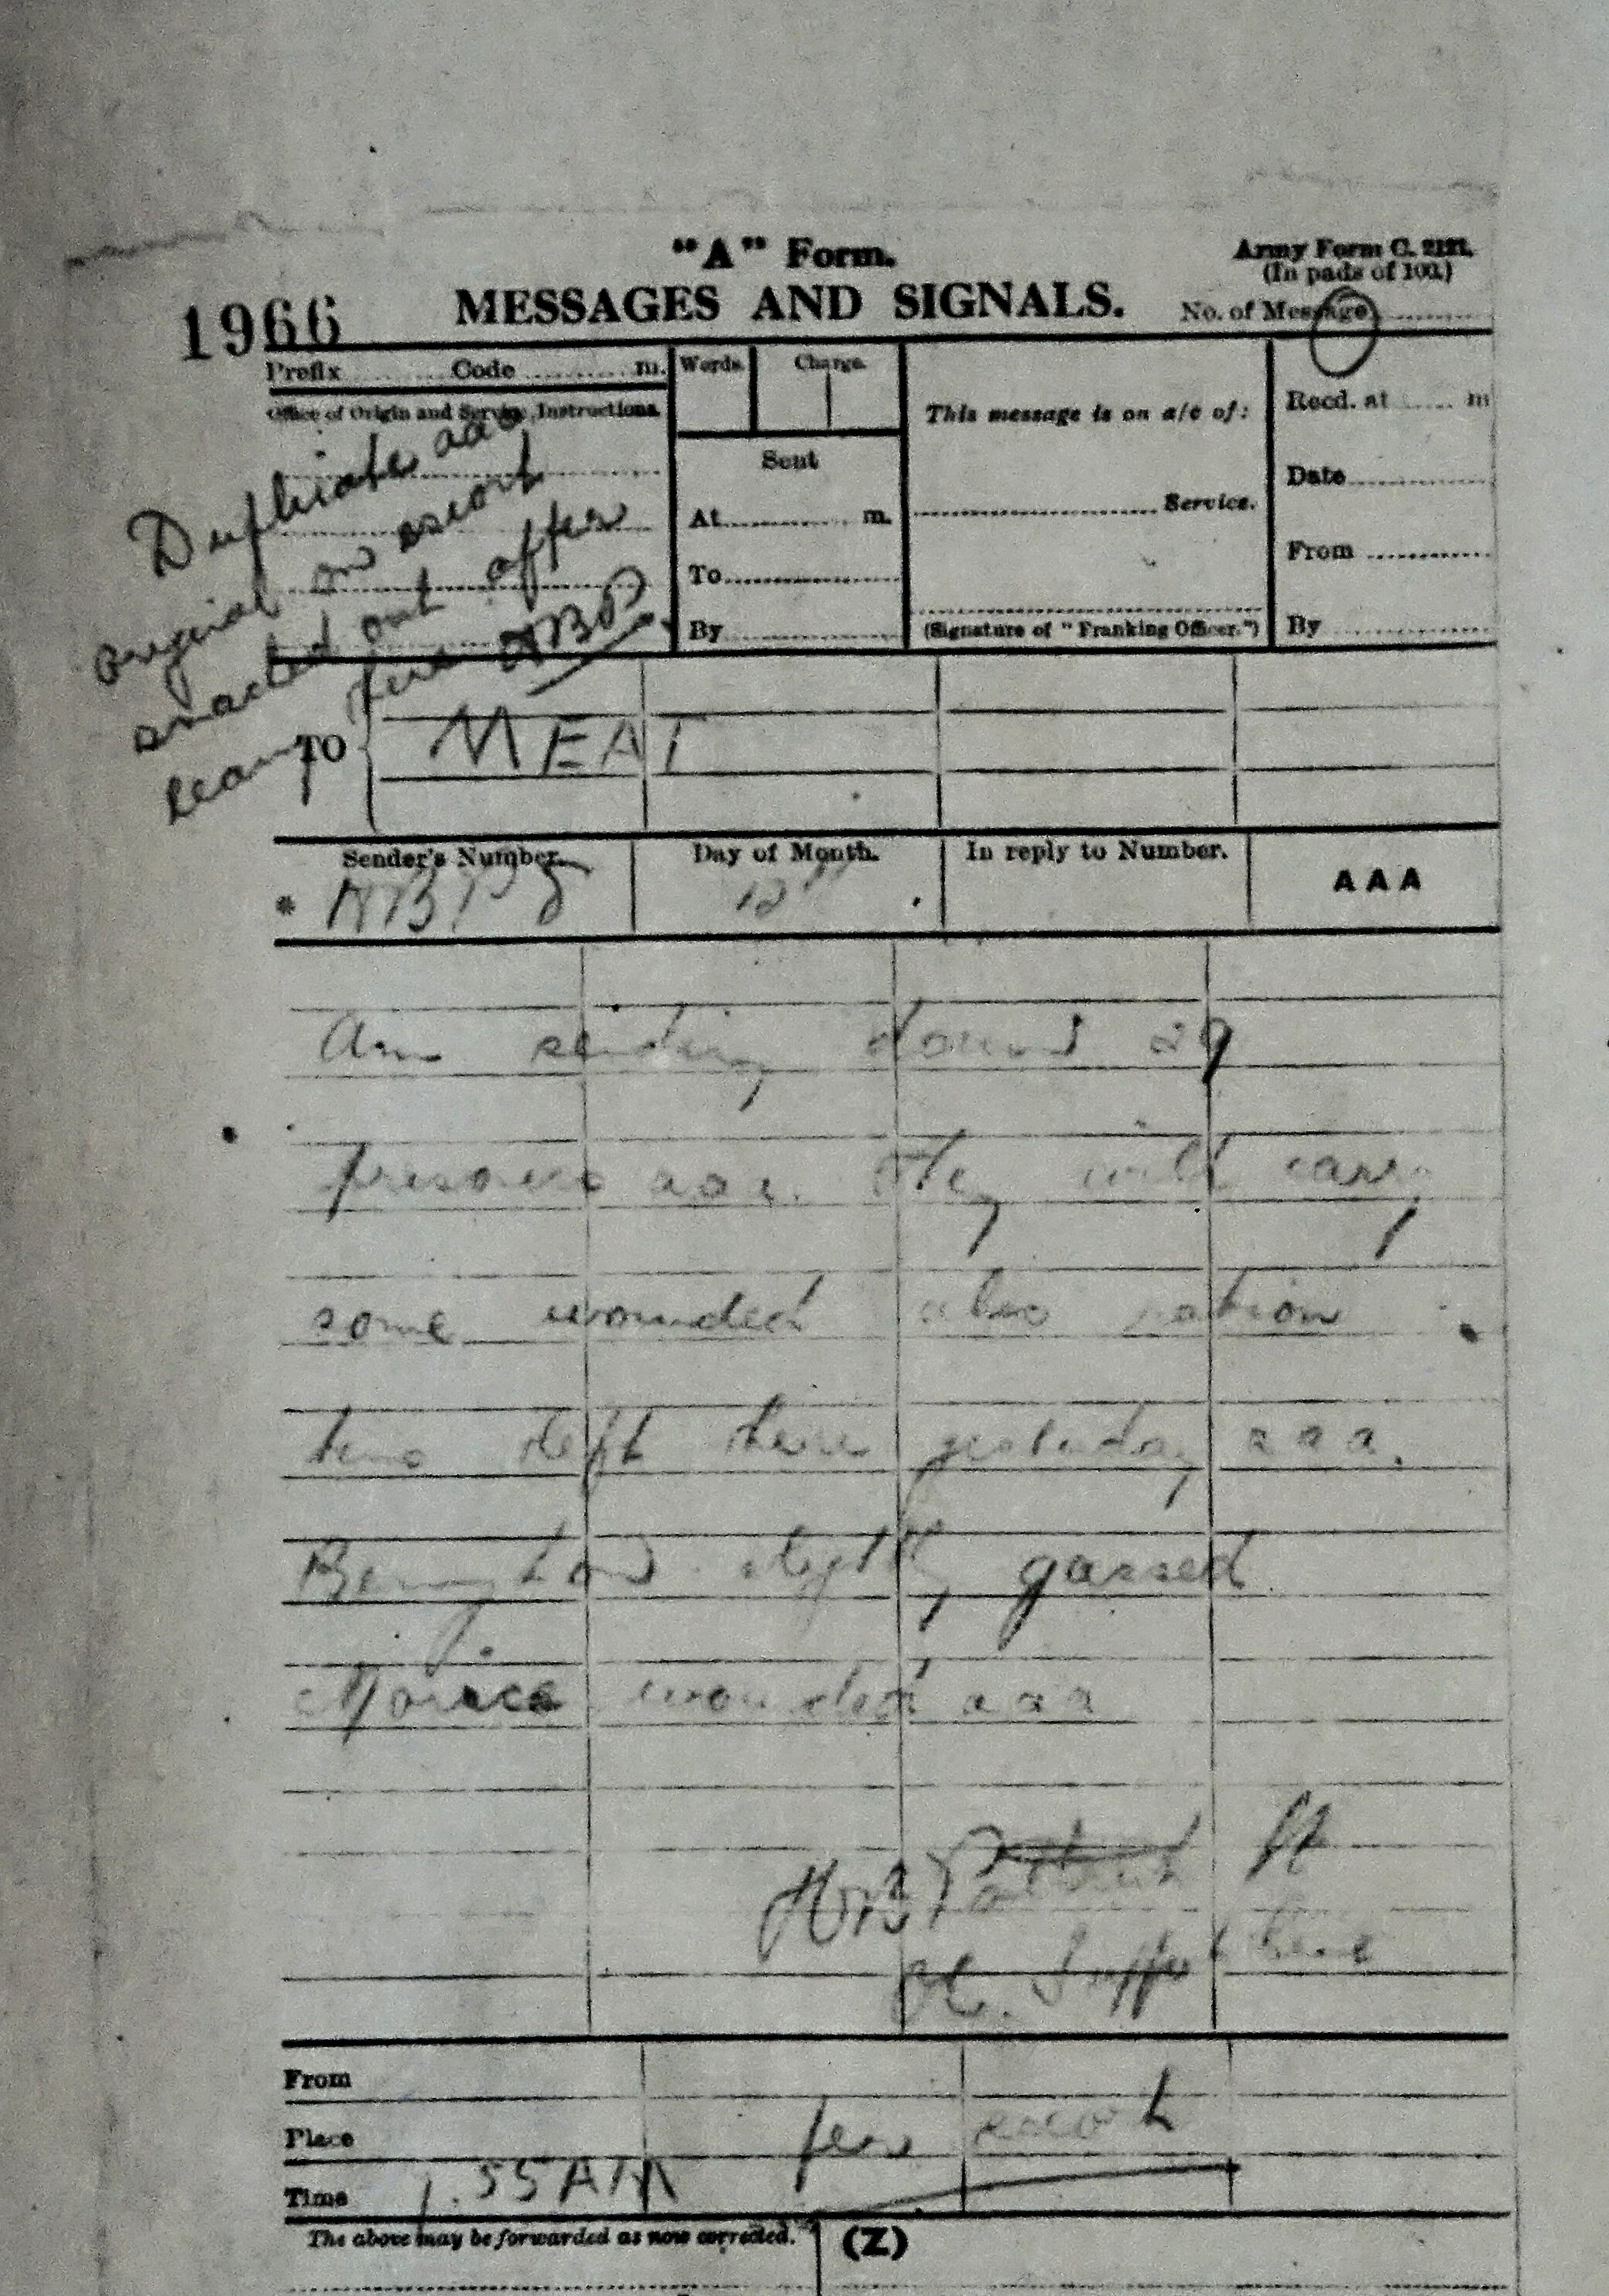 "A" Form.
Army Form C. 2121.
(In pads of 100.)
MESSAGES AND SIGNALS.
No. of Message
1966
Prefix Code m.
Words. Charge.
This message is on a/c of:
Recd. at m
Office of Origin and Service Instructions.
Duplicate aaa
original on escort
out after
here HBP
Sent
At m.
To
By
Service.
(Signature of "Franking Officer.")
Date
From
By
TO
MEAT
Sender's Number.
Day of Month.
In reply to Number.
AAA
* HBP 8
12th
Am sending down 29
prisoners aaa. They will carry
some wounded also ration
tins left here yesterday aaa.
slightly gassed
wounded aaa
HB Lt
OC. Support Line
From
Place
per escort
Time
1.55 AM
The above may be forwarded as now corrected.
(Z)